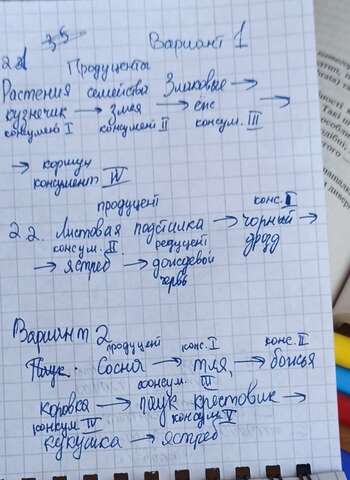 35
Вариант 1
21
Продуценты
Растения семейства Злаковые →
кузнечик → змея → ёпс →
консумент I консумент II консум. III
→ коршун
консумент IV
продуцент конс. I
22. Листовая подстилка → чорный →
консум. II редуцент дрозд
→ ястреб → дождевой
червь
Вариант 2
продуцент конс. I конс. II
Паук. Сосна → тля, → божья
консум. III
коровка → паук крестовик →
конкум. IV консум. V
кукушка → ястреб